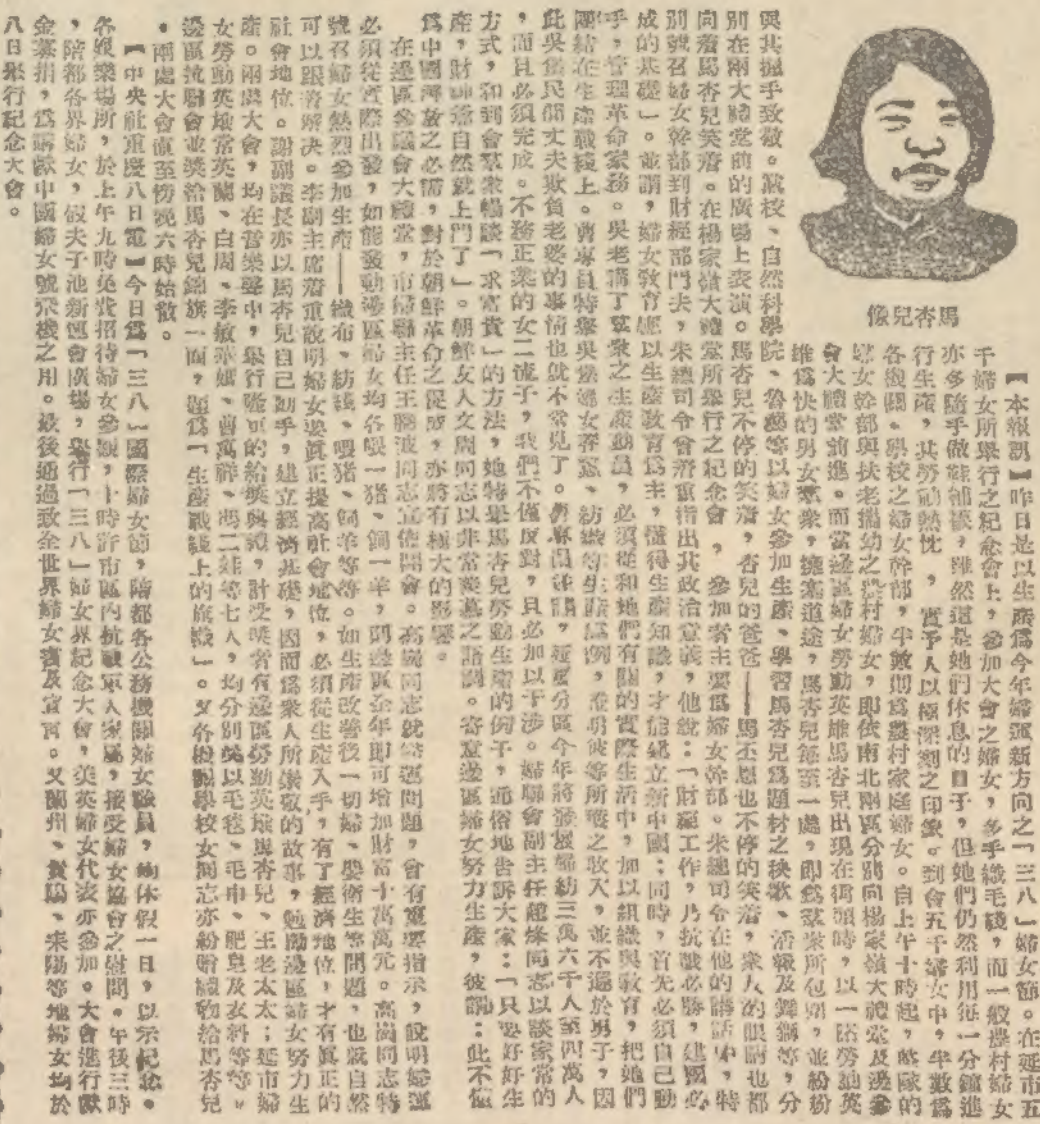 像兒杏馬
【本報訊】昨日是以生產爲今年婦運新方向之「三八」婦女節。在延市五
千婦女所舉行之紀念會上，參加大會之婦女，多手織毛綫，而一般農村婦女
亦多隨手做鞋補襪，雖然這是她們休息的日子，但她們仍然利用每一分鐘進
行生產，其勞動熱忱，實予人以極深刻之印象。到會五千婦女中，半數爲
各機關、學校之婦女幹部，半數則爲農村家庭婦女。自上午十時起，整隊的
婦女幹部與扶老攜幼之農村婦女，即依南北兩區分別向楊家嶺大禮堂及邊參
會大禮堂前進。而當邊區婦女勞動英雄馬杏兒出現在街頭時，以一睹勞動英
雄爲快的男女羣衆，擁塞道途，馬杏兒每至一處，即爲羣衆所包圍，並紛紛
與其握手致敬。黨校、自然科學院、魯藝等以婦女參加生產、學習馬杏兒爲題材之秧歌、活報及舞獅等，分
別在兩大禮堂前的廣場上表演。馬杏兒不停的笑着，杏兒的爸爸——馬丕恩也不停的笑着，衆人的眼睛也都
向着馬杏兒笑着。在楊家嶺大禮堂所舉行之紀念會，參加者主要爲婦女幹部。朱總司令在他的講話中，特
別號召婦女幹部到財經部門去，朱總司令曾着重指出其政治意義，他說：「財經工作，乃抗戰必勝，建國必
成的基礎」。並謂，婦女教育應以生產教育爲主，懂得生產知識，才能建立新中國；同時，首先必須自己動
手，管理革命家務。吳老講了羣衆之生產動員，必須從和她們有關的實際生活中，加以組織與教育，把她們
團結在生產戰綫上。曹專員特舉吳堡婦女養蠶、紡織等生產爲例，證明彼等所獲之收入，並不遜於男子，因
此吳堡民間丈夫欺負老婆的事情也就不常見了。曹專員並謂，綏德分區今年將發展婦紡三萬六千人至四萬人
，而且必須完成。不務正業的女二流子，我們不僅反對，且必加以干涉。婦聯會副主任趙烽同志以談家常的
方式，和到會羣衆暢談「求富貴」的方法，她特舉馬杏兒勞動生產的例子，通俗地告訴大家：「只要好好生
產，財神爺自然就上門了」。朝鮮友人文周同志以非常羨慕之語調。寄意邊區婦女努力生產，彼謂：此不僅
爲中國解放之必需，對於朝鮮革命之促成，亦將有極大的影響。
在邊區參議會大禮堂，市婦聯主任王聰波同志宣佈開會。高崗同志就婦運問題，曾有重要指示，說明婦運
必須從實際出發，如能發動邊區婦女均各喂一猪、飼一羊，則邊區全年即可增加財富十萬萬元。高崗同志特
號召婦女熱烈參加生產——織布、紡綫、喂猪、飼羊等等。如生產改善後一切婦、嬰衛生等問題，也就自然
可以跟着解决。李副主席着重說明婦女要真正提高社會地位，必須從生產入手，有了經濟地位，才有眞正的
社會地位。謝副議長亦以馬杏兒自己動手，建立經濟基礎，因而爲衆人所崇敬的故事，勉勵邊區婦女努力生
產。兩處大會，均在音樂聲中，舉行隆重的給獎典禮，計受獎者有邊區勞動英雄馬杏兒、王老太太；延市婦
女勞動英雄常英蘭、白周、李敏英嫂、曹萬祥、馮二娃等七人，均分別獎以毛毯、毛巾、肥皂及衣料等等。
邊區抗聯會並獎給馬杏兒錦旗一面，題爲「生產戰綫上的旗幟」。又各機關學校女同志亦紛贈織物給馬杏兒
。兩處大會直至傍晚六時始散。
【中央社重慶八日電】今日爲「三八」國際婦女節，陪都各公務機關婦女職員，均休假一日，以示紀念。
各娛樂場所，於上午九時免費招待婦女參觀，十時許市區內抗戰軍人家屬，接受婦女協會之慰問。午後三時
，陪都各界婦女，假夫子池新運會廣場，舉行「三八」婦女界紀念大會，美英婦女代表亦參加。大會進行獻
金募捐，爲購獻中國婦女號飛機之用。最後通過致全世界婦女書及宣言。又蘭州、貴陽、耒陽等地婦女均於
八日舉行紀念大會。